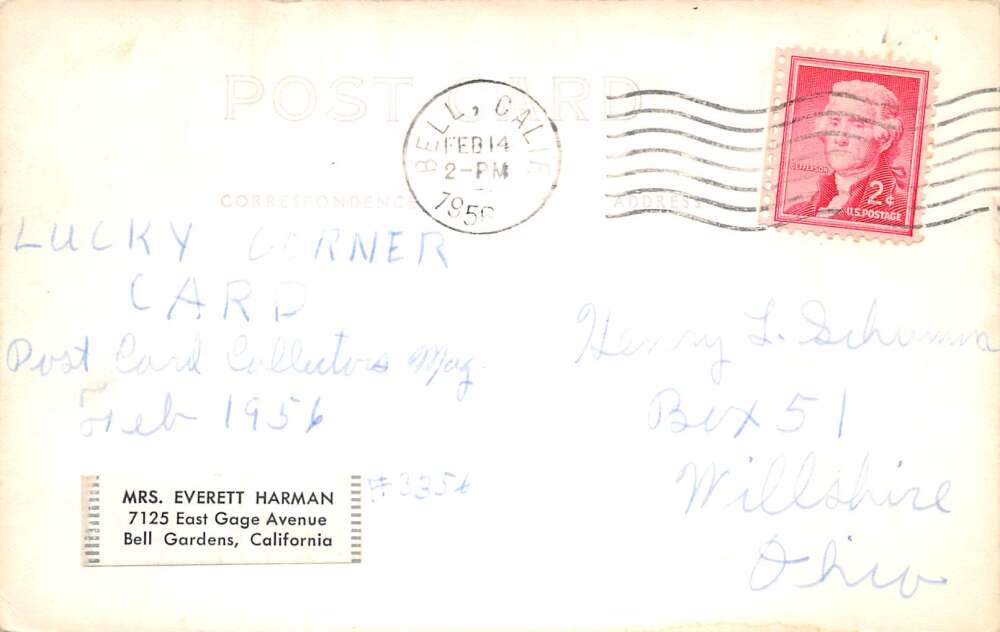 POST CARD
BELL, CALIF
FEB 14
2-PM
1956
JEFFERSON
2¢
U.S. POSTAGE
CORRESPONDENCE
ADDRESS
LUCKY CORNER
CARD
Post Card Collectors Mag.
Feb 1956
MRS. EVERETT HARMAN
7125 East Gage Avenue
Bell Gardens, California
Henry L.
Box 51
Willshire
Ohio